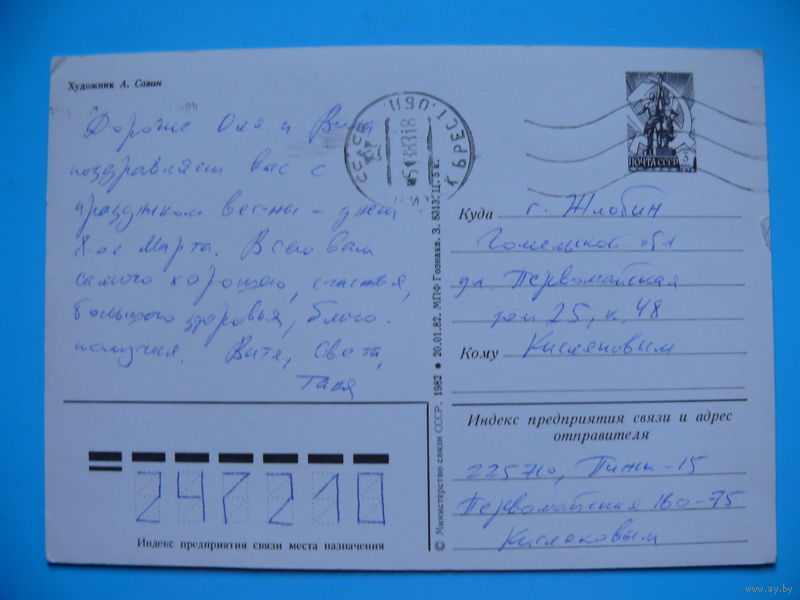 Художник А. Савин
Дорогие Оля и Витя
поздравляем вас с
праздником весны – днем
8-ое Марта. Всего вам
самого хорошего, счастья,
большого здоровья, благо-
получия. Витя, Света,
Таня
ПОЧТА СССР
Куда г. Жлобин
Гомельской обл
ул. Первомайская
дом 25, к. 48
Кому Кисляковым
Индекс предприятия связи и адрес
отправителя
225710, Пинск-15
Первомайская 160-75
Кисляковым
247210
Индекс предприятия связи места назначения
© Министерство связи СССР. 1982 ● 20.01.82. МПФ Гознака. З. 88137. Ц. 5 к.
www.ay.by